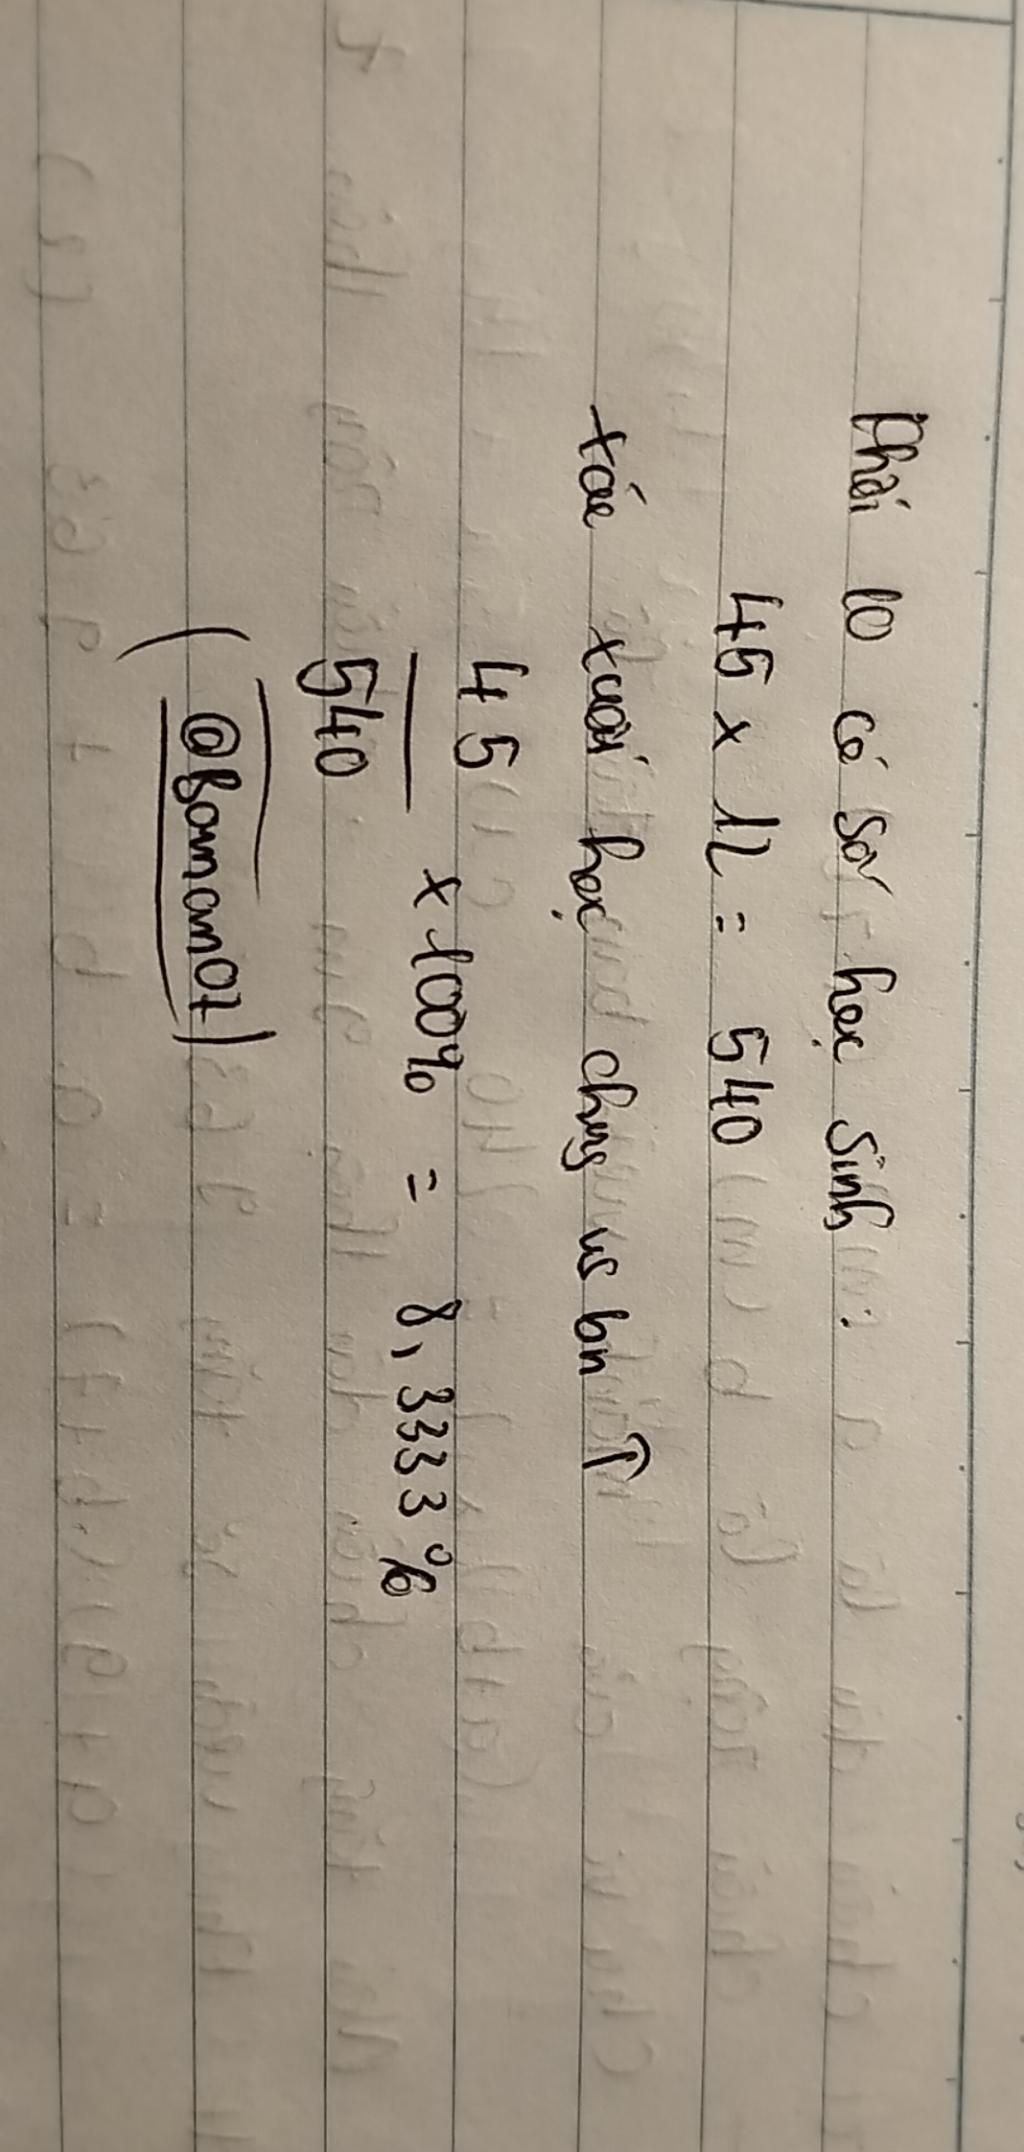 Khối 10 có số học sinh:
45 x 12 = 540
xác xuất học chung vs bn T
45
540
x 100% = 8,3333%
(@Bomcmot)